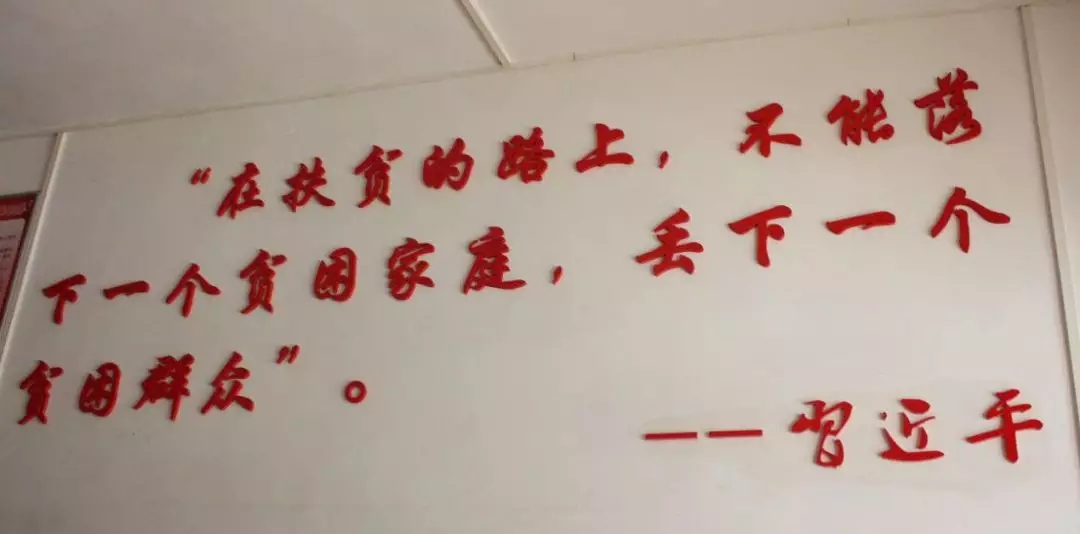 “在扶贫的路上，不能落
下一个贫困家庭，丢下一个
贫困群众”。
——习近平